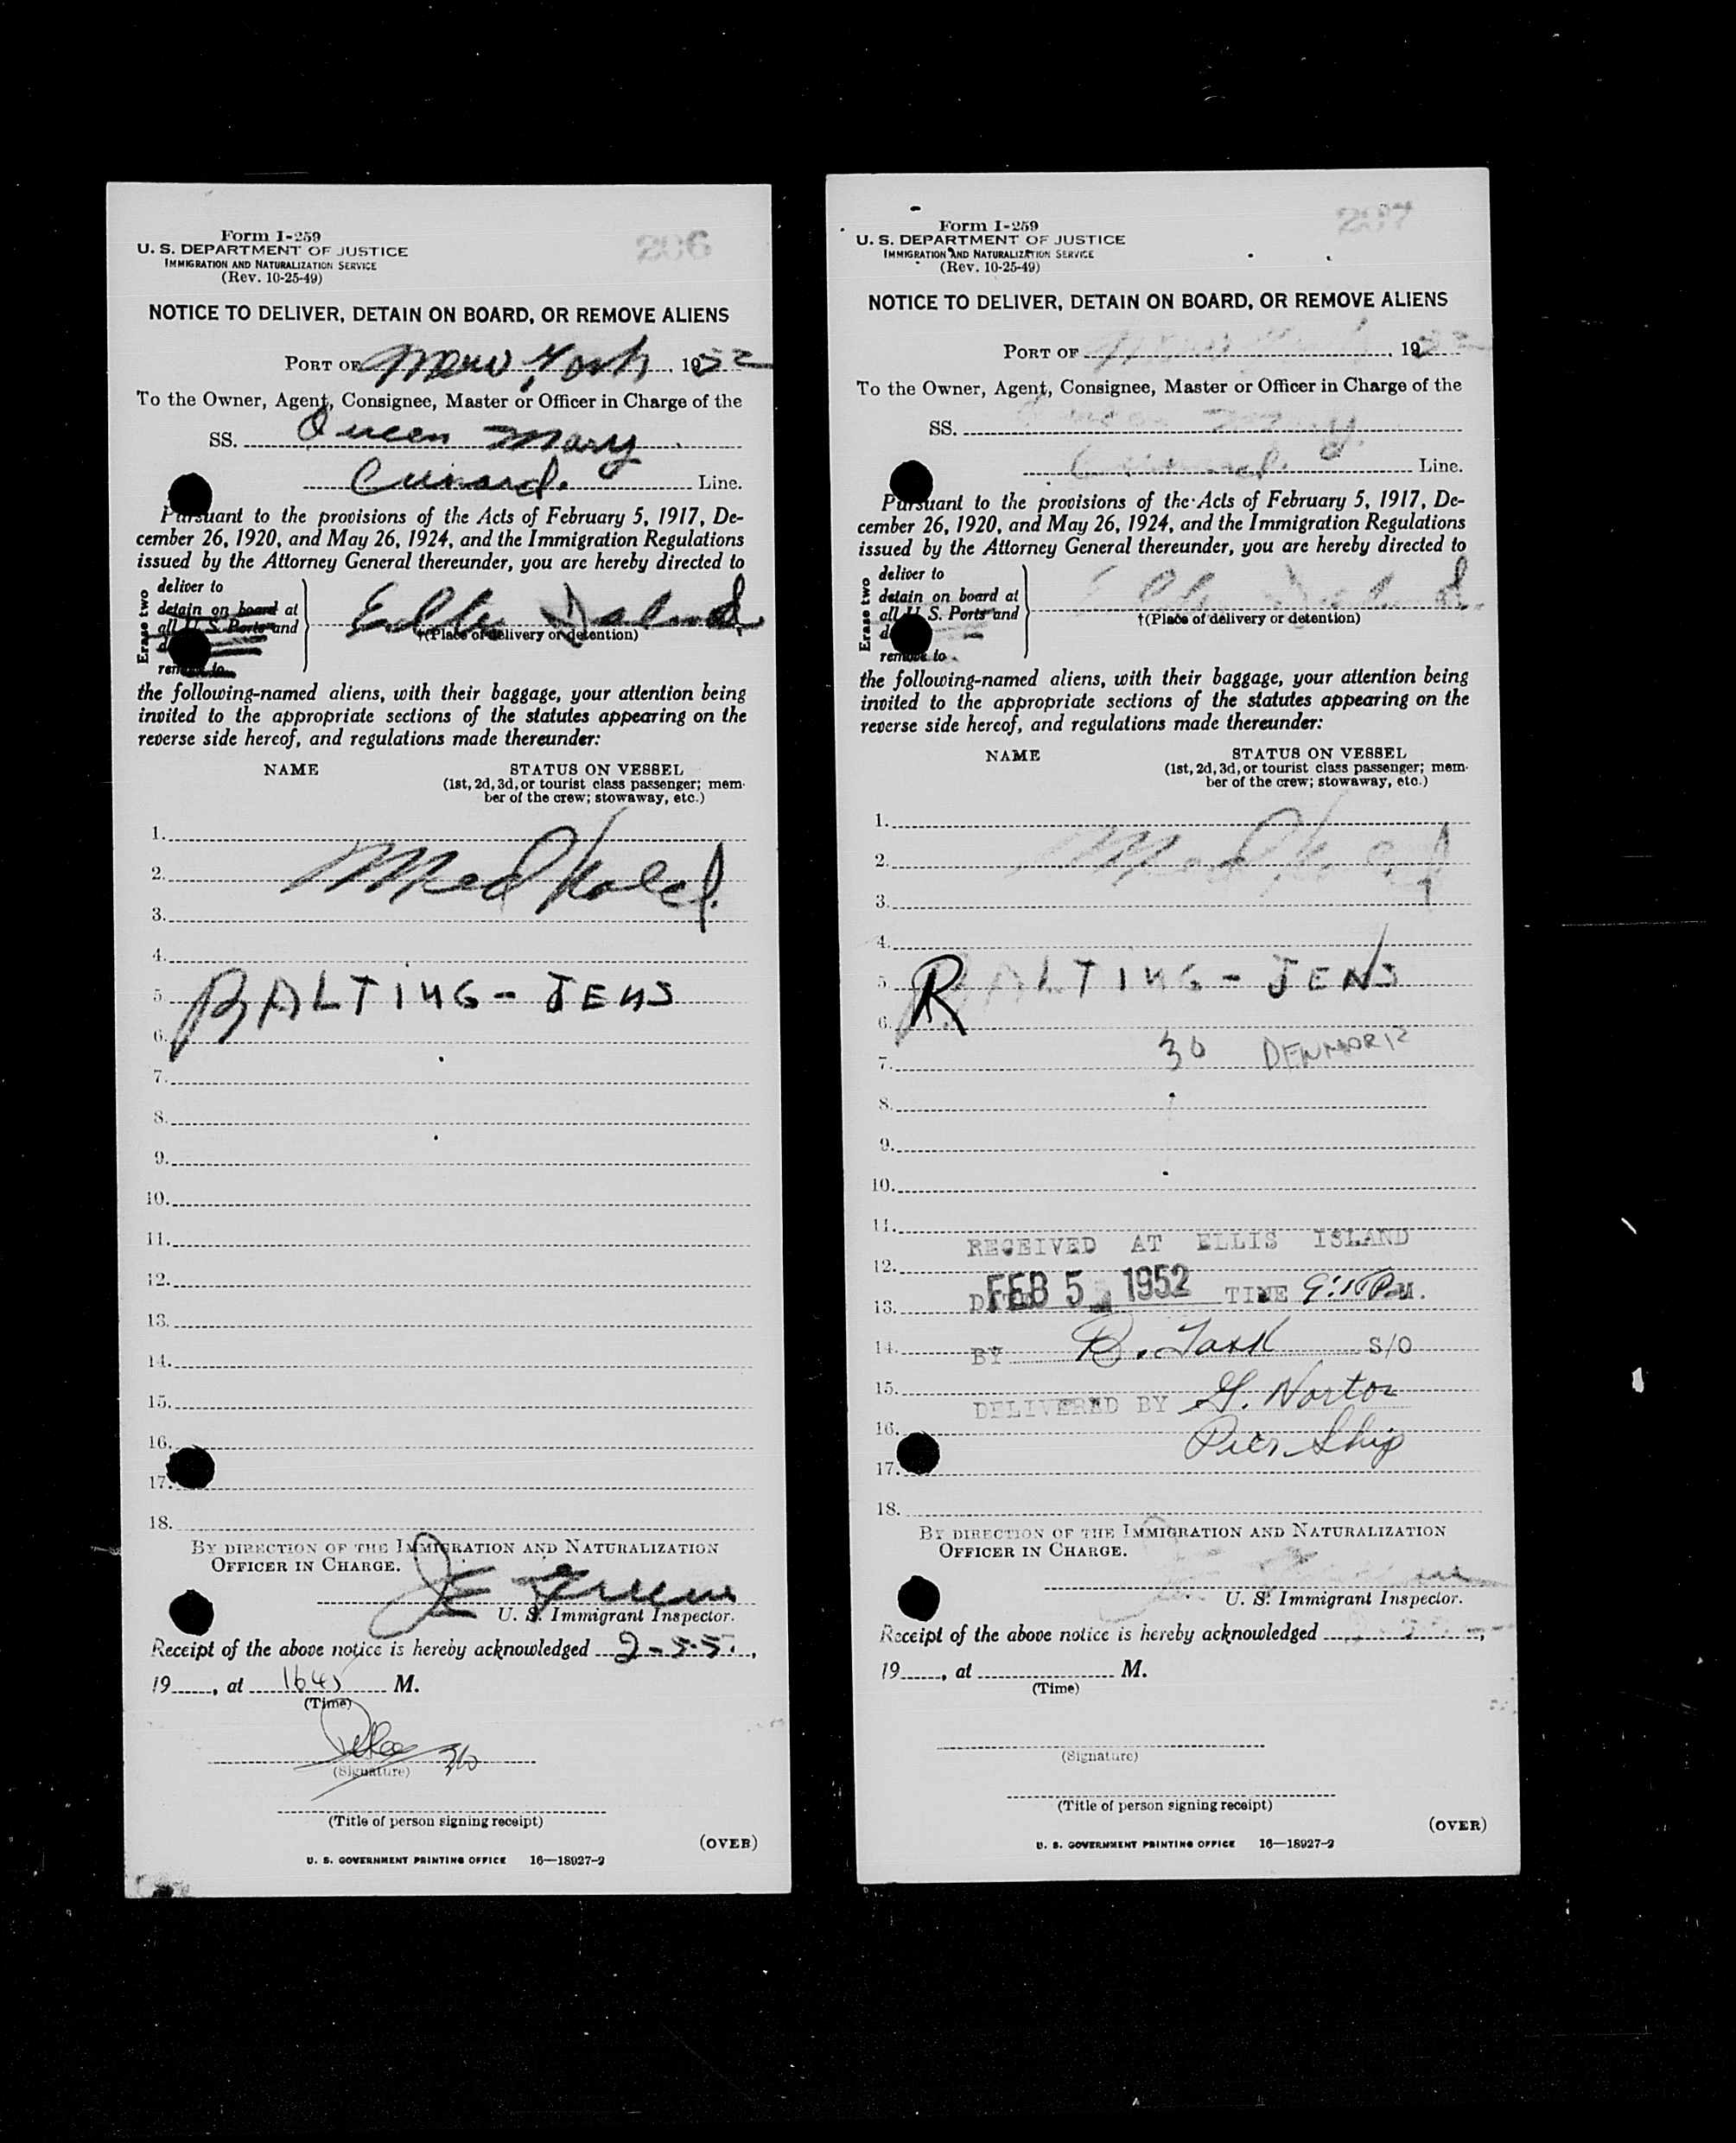 Form I-259
U. S. DEPARTMENT OF JUSTICE
IMMIGRATION AND NATURALIZATION SERVICE
(Rev. 10-25-49)
206
NOTICE TO DELIVER, DETAIN ON BOARD, OR REMOVE ALIENS
PORT OF New York, 1952
To the Owner, Agent, Consignee, Master or Officer in Charge of the
SS. Queen Mary
Cunard. Line.
Pursuant to the provisions of the Acts of February 5, 1917, De-
cember 26, 1920, and May 26, 1924, and the Immigration Regulations
issued by the Attorney General thereunder, you are hereby directed to
Erase two
deliver to
detain on board at
all U. S. Ports and
remove to
Ellis Island
†(Place of delivery or detention)
the following-named aliens, with their baggage, your attention being
invited to the appropriate sections of the statutes appearing on the
reverse side hereof, and regulations made thereunder:
NAME
STATUS ON VESSEL
(1st, 2d, 3d, or tourist class passenger; mem-
ber of the crew; stowaway, etc.)
1.
2. Med Hold
3.
4.
5. BALTING - JENS
6.
7.
8.
9.
10.
11.
12.
13.
14.
15.
16.
17.
18.
BY DIRECTION OF THE IMMIGRATION AND NATURALIZATION
OFFICER IN CHARGE.
U. S. Immigrant Inspector.
Receipt of the above notice is hereby acknowledged 2-5-5
19, at 1645 M.
(Time)
(Signature)
(Title of person signing receipt)
(OVER)
U. S. GOVERNMENT PRINTING OFFICE 16—18927-2
Form I-259
U. S. DEPARTMENT OF JUSTICE
IMMIGRATION AND NATURALIZATION SERVICE
(Rev. 10-25-49)
207
NOTICE TO DELIVER, DETAIN ON BOARD, OR REMOVE ALIENS
PORT OF New York, 1952
To the Owner, Agent, Consignee, Master or Officer in Charge of the
SS. Queen Mary
Cunard. Line.
Pursuant to the provisions of the Acts of February 5, 1917, De-
cember 26, 1920, and May 26, 1924, and the Immigration Regulations
issued by the Attorney General thereunder, you are hereby directed to
Erase two
deliver to
detain on board at
all U. S. Ports and
remove to
Ellis Island
†(Place of delivery or detention)
the following-named aliens, with their baggage, your attention being
invited to the appropriate sections of the statutes appearing on the
reverse side hereof, and regulations made thereunder:
NAME
STATUS ON VESSEL
(1st, 2d, 3d, or tourist class passenger; mem-
ber of the crew; stowaway, etc.)
1.
2. Med Hold
3. 1
4.
5. RALTING - JENS
6.
7. 30 DENMARK
8.
9.
10.
11.
RECEIVED AT ELLIS ISLAND
12.
13. DATE FEB 5 1952 TIME 9:15 P.M.
14. BY S/O
15.
DELIVERED BY G. Norton
16. Pier Ship
17.
18.
BY DIRECTION OF THE IMMIGRATION AND NATURALIZATION
OFFICER IN CHARGE.
U. S. Immigrant Inspector.
Receipt of the above notice is hereby acknowledged
19, at M.
(Time)
(Signature)
(Title of person signing receipt)
(OVER)
U. S. GOVERNMENT PRINTING OFFICE 16—18927-2